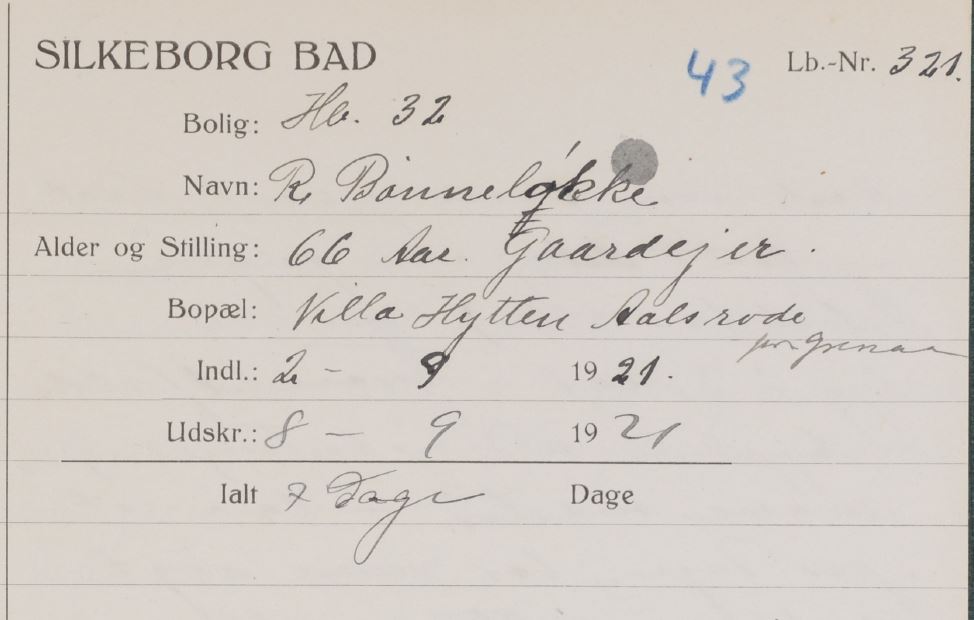 SILKEBORG BAD 43 Lb.-Nr. 321.
Bolig: Hb. 32
Navn: R. Bonneløkke
Alder og Stilling: 66 Aar. Gaardejer.
Bopæl: Villa Hytten Aalsrode
pr. Grenaa
Indl.: 2 - 9 1921.
Udskr.: 8 - 9 1921
Ialt 7 Dage Dage